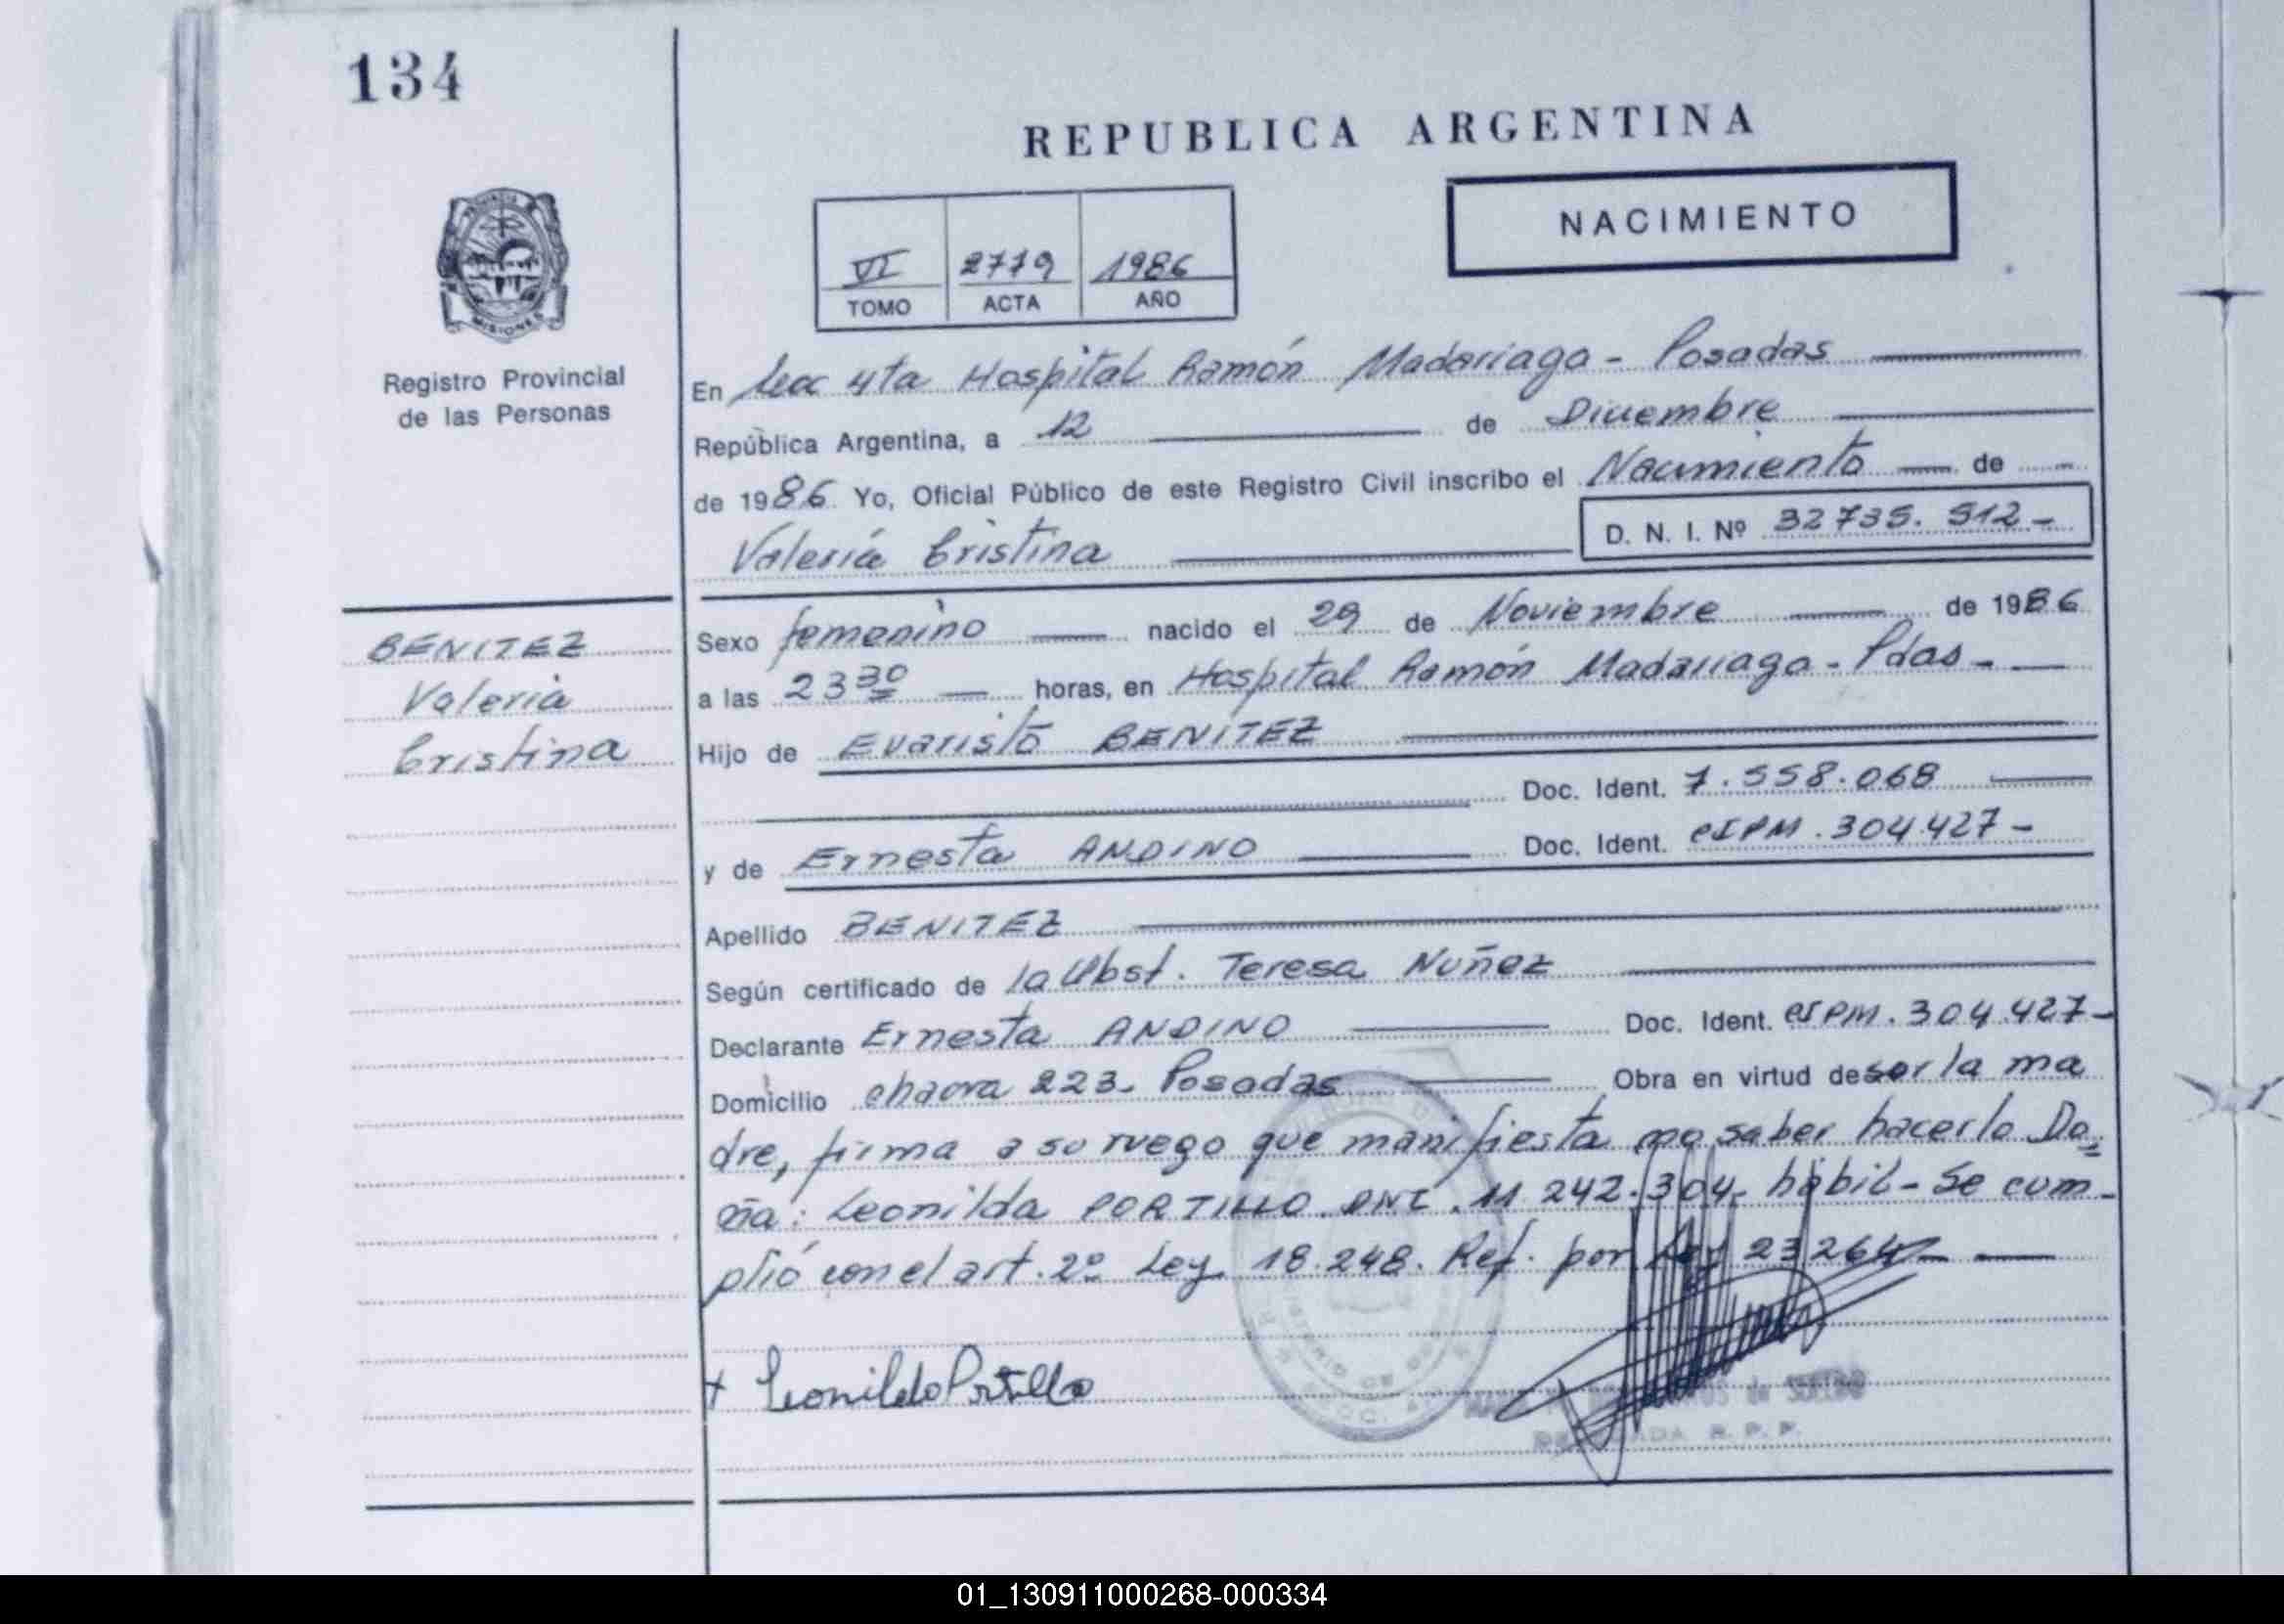 134
REPUBLICA ARGENTINA
NACIMIENTO
VI 2779 1986
TOMO ACTA AÑO
PROVINCIA DE MISIONES
Registro Provincial
de las Personas
En Secc 4ta Hospital Ramón Madariaga - Posadas
República Argentina, a 12 de Diciembre
de 1986 Yo, Oficial Público de este Registro Civil inscribo el Nacimiento de
Valeria Cristina
D. N. I. Nº 32735.512-
BENITEZ
Valeria
Cristina
Sexo femenino nacido el 29 de Noviembre de 1986
a las 23 30 horas, en Hospital Ramón Madariaga - Pdas -
Hijo de Evaristo BENITEZ
Doc. Ident. 7.558.068
y de Ernesta ANDINO Doc. Ident. CIPM.304.427-
Apellido BENITEZ
Según certificado de la Obst. Teresa Nuñez
Declarante Ernesta ANDINO Doc. Ident. CIPM.304.427-
Domicilio chacra 223- Posadas Obra en virtud de ser la ma
dre, firma a su ruego que manifiesta no saber hacerlo Do=
ña: Leonilda PORTILLO DNI. 11 242.304, hábil - Se cum-
plió con el art. 2º Ley 18.248. Ref. por Ley 23264-
+ Leonilda Portillo
R. P. P.
01_130911000268-000334